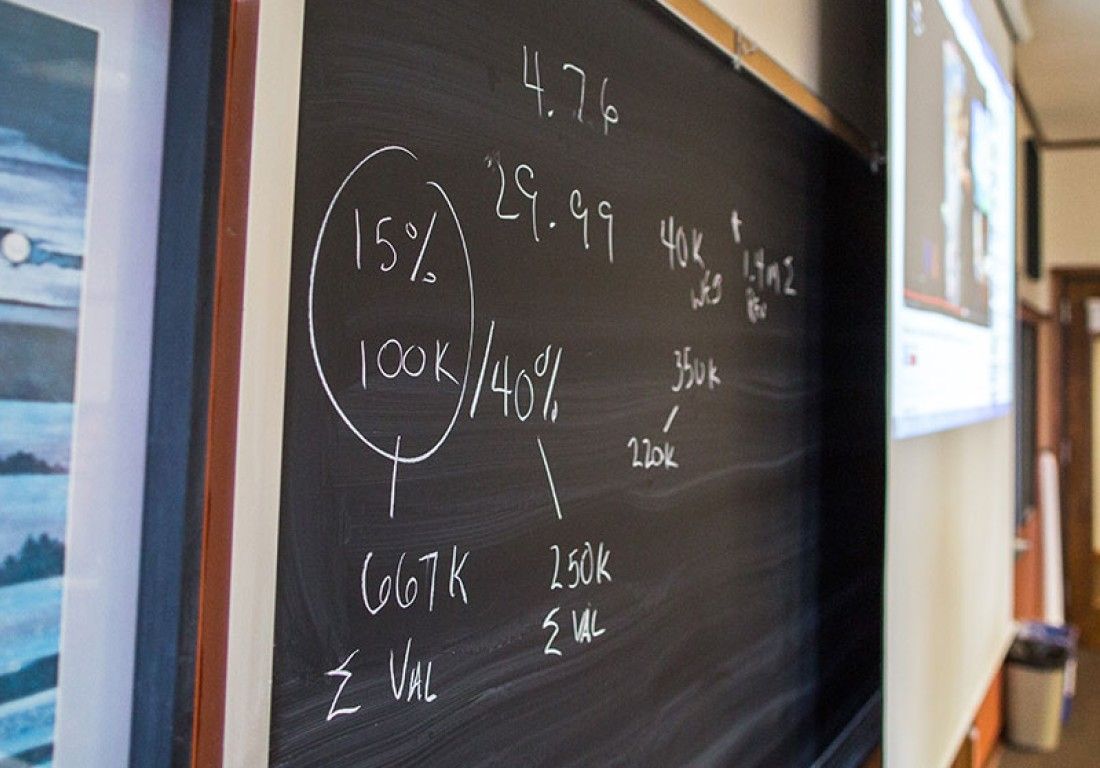 4.76
29.99
15%
100K /40%
667K
Σ VAL
250K
Σ VAL
40K
WEB
* 1.4M Σ
REV
350K
220K